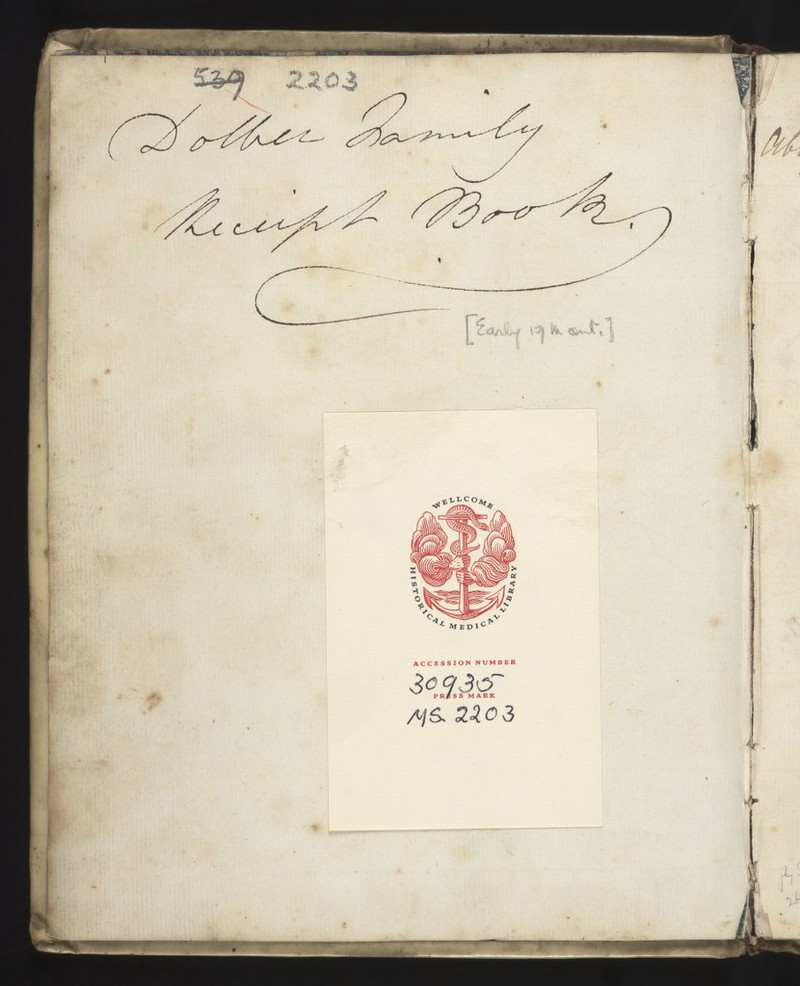 539 2203
Dolber Family
Receipt Book.
[Early 19th cent.]
WELLCOME
HISTORICAL MEDICAL LIBRARY
ACCESSION NUMBER
30935
PRESS MARK
MS. 2203